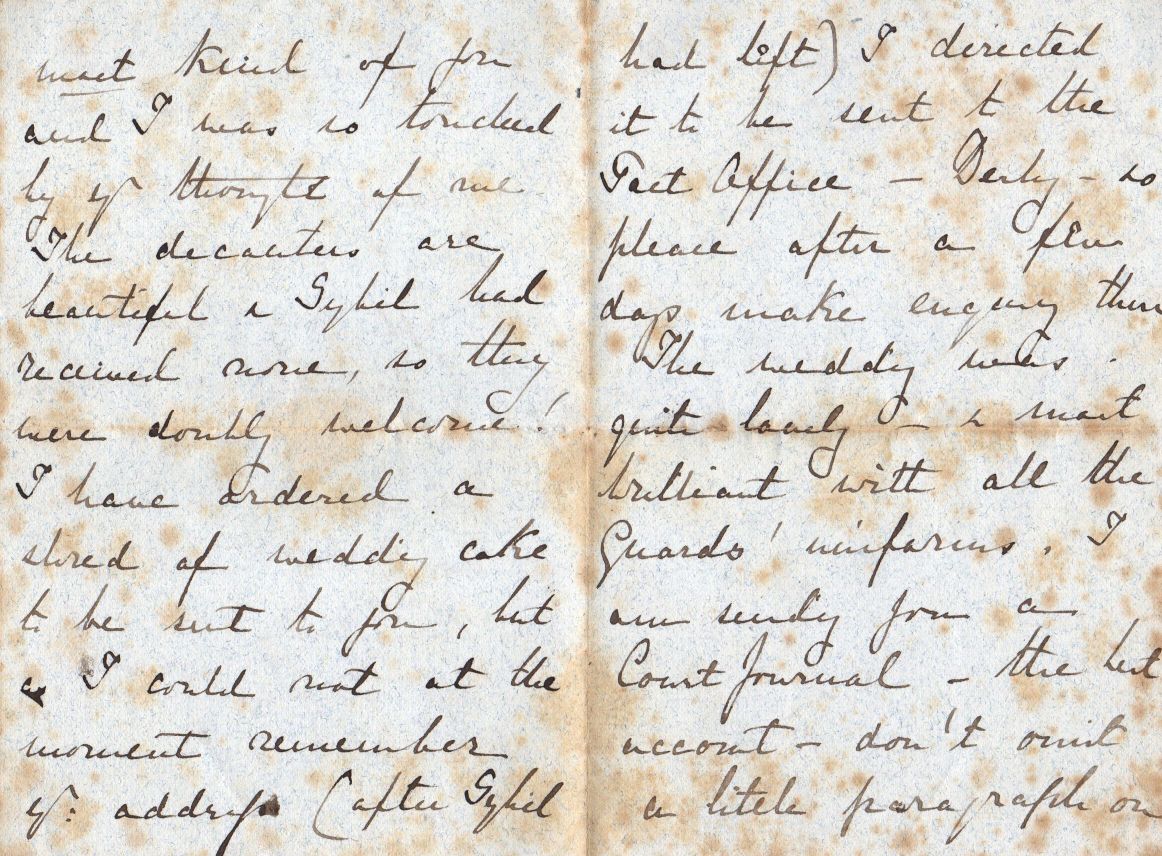 most kind of you
and I was so touched
by yr thought of me
The decanters are
beautiful & Sybil had
received none, so they
were doubly welcome!
I have ordered a
shred of wedding cake
to be sent to you, but
as I could not at the
moment remember
yr: address (after Sybil
had left) I directed
it to be sent to the
Post Office – Derby – so
please after a few
days make enquiry there
The wedding was
quite lovely – & most
brilliant with all the
Guards' uniforms. I
am sending you a
Court Journal – the best
account – don't omit
a little paragraph on